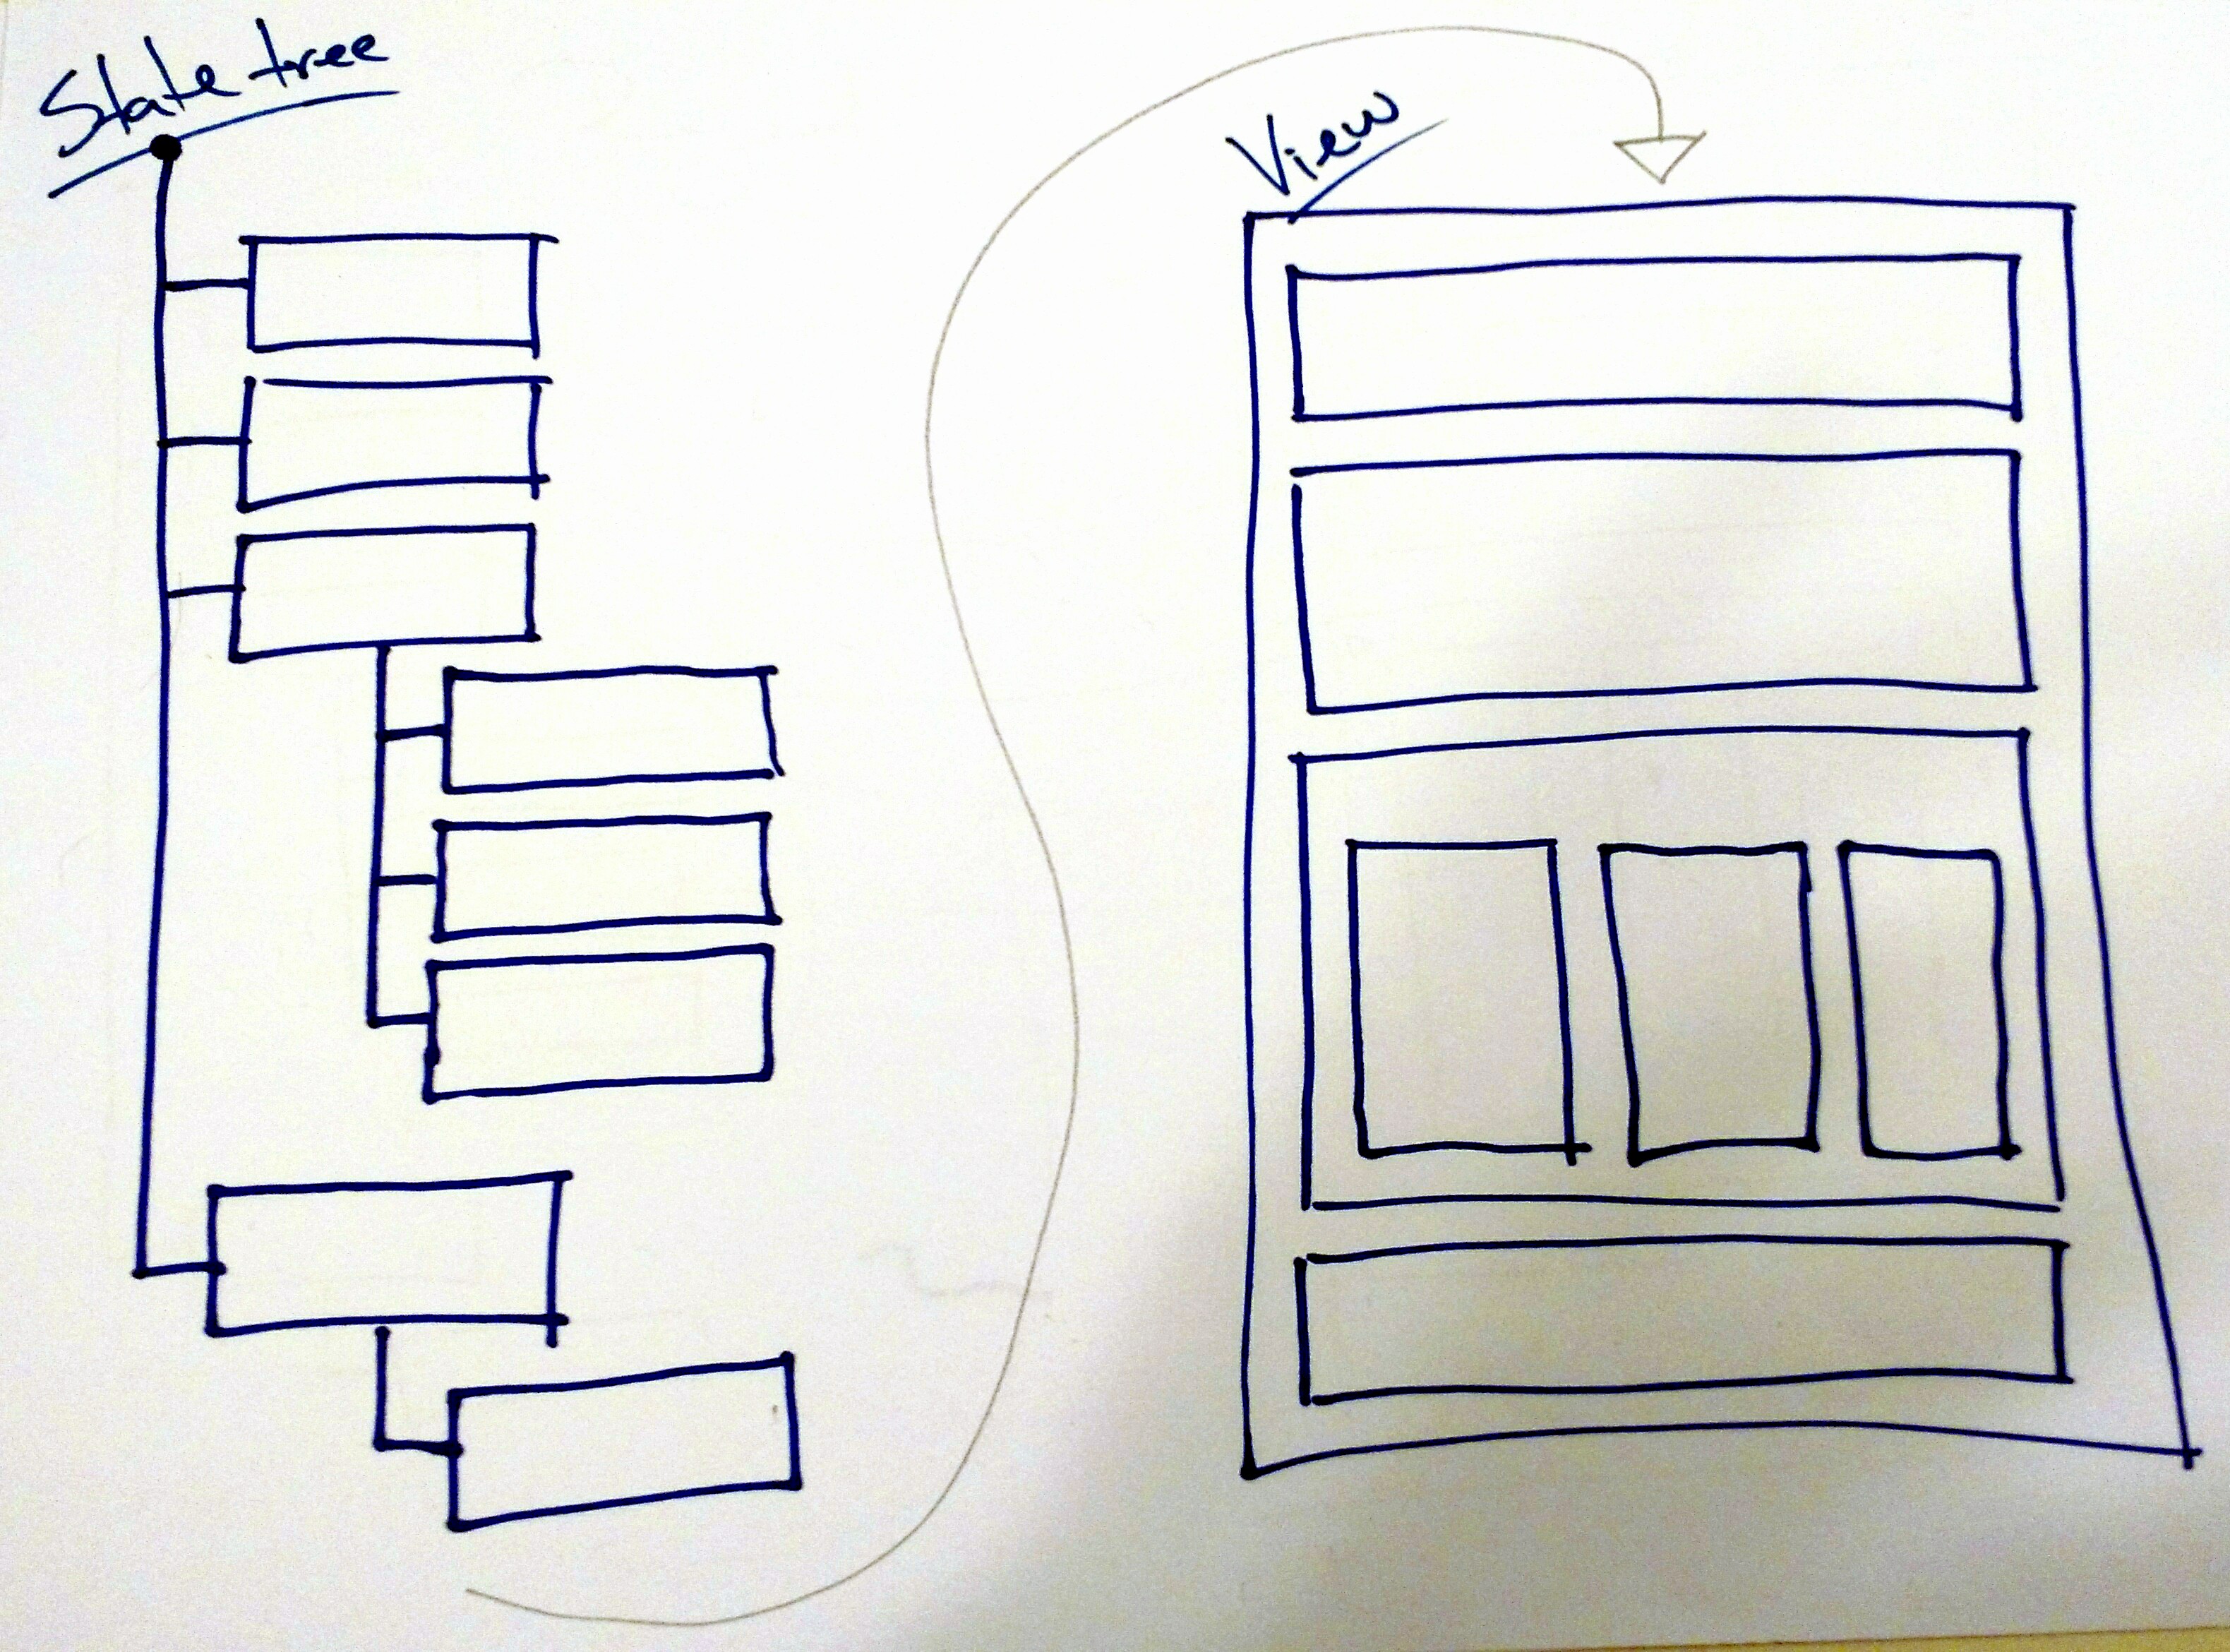 State tree
View